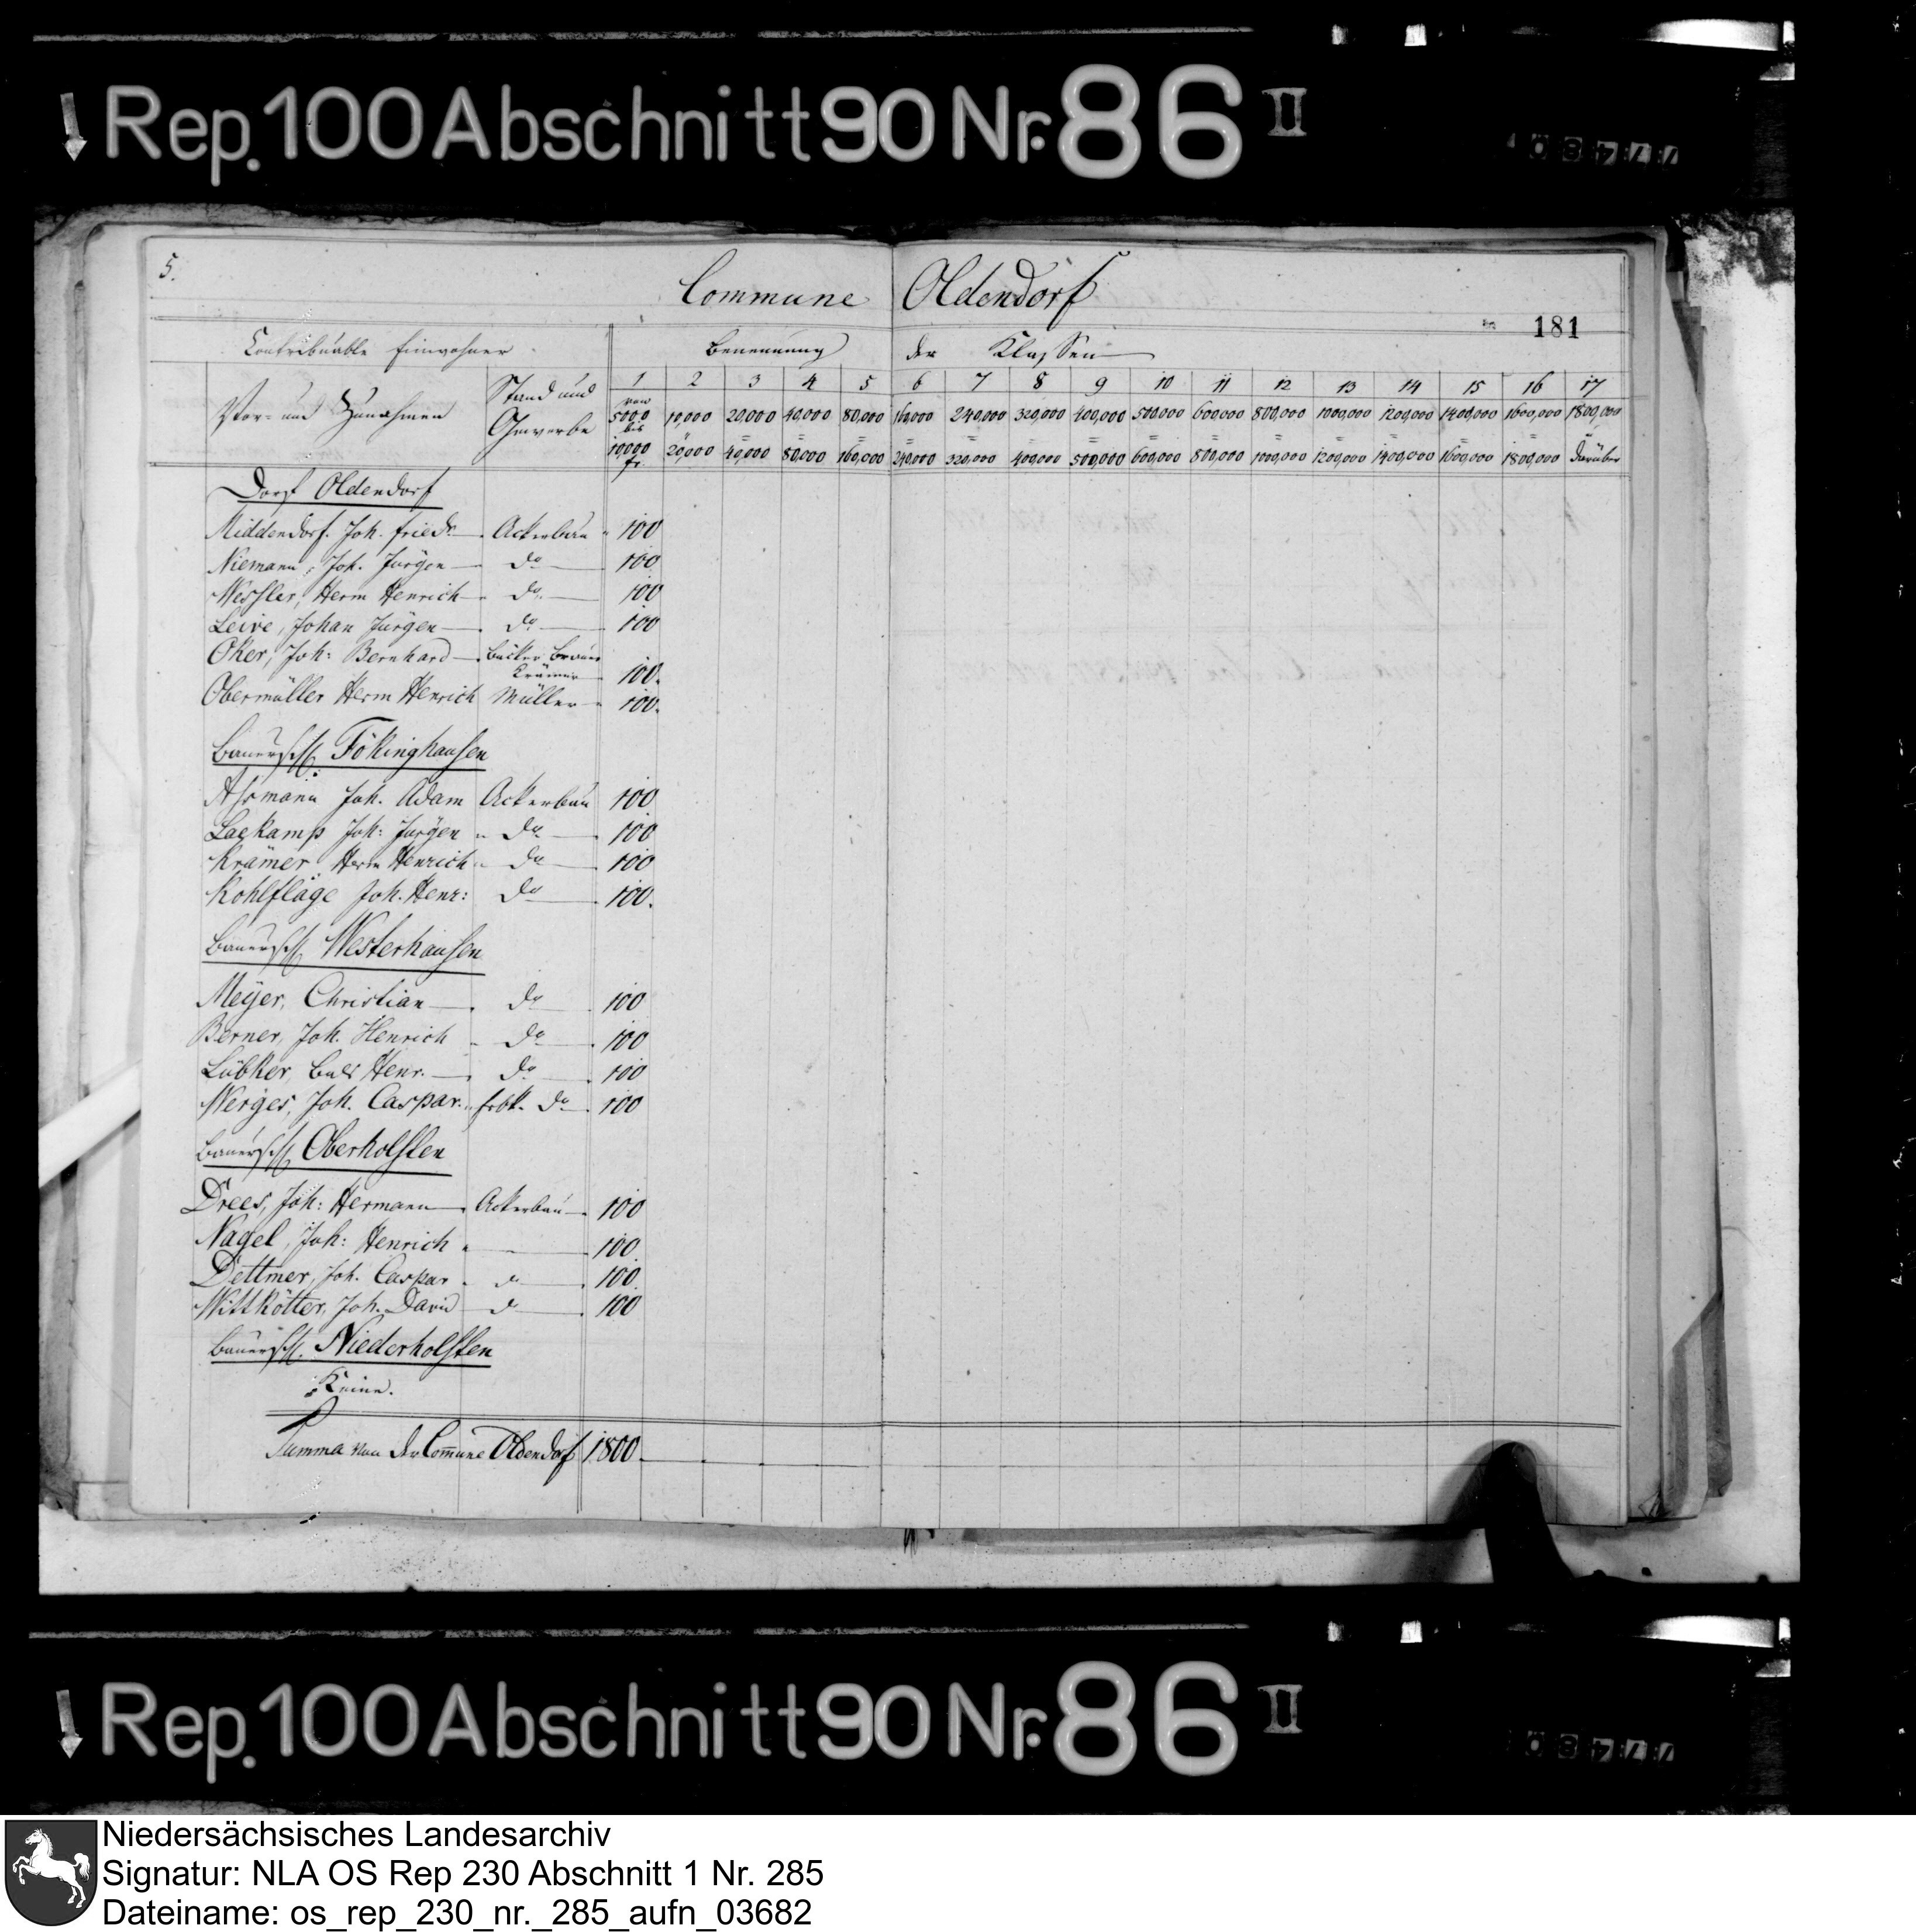 Rep. 100 Abschnitt 90 Nr. 86 II
5.
Commune Oldendorf
181
Contribuable Einwohner
Benennung der Klassen
Vor- und Zunahmen
Stand und Gewerbe
1 2 3 4 5 6 7 8 9 10 11 12 13 14 15 16 17
von 5000 10,000 20,000 40,000 80,000 160,000 240,000 320,000 400,000 500,000 600,000 800,000 1000,000 1200,000 1400,000 1600,000 1800,000
bis
10,000 20,000 40,000 80,000 160,000 240,000 320,000 400,000 500,000 600,000 800,000 1000,000 1200,000 1400,000 1600,000 1800,000 darüber
fr.
Dorf Oldendorf
Middendorf. Joh. Friedr. Ackerbau 100
Niemann, Joh. Jürgen do 100
Wessler, Herm Henrich do 100
Leive, Johan Jürgen do 100
Oker, Joh: Bernhard Bäcker Brauer
Krämer 100.
Obermüller Herm Henrich Müller 100.
Bauersch. Fökinghausen
Assmann Joh. Adam Ackerbau 100
Laekamp Joh: Jürgen do 100
Krämer Herm Henrich do 100
Kohlfläge Joh. Henr: do 100.
Bauersch. Westerhausen
Meyer, Christian do 100
Berner, Joh. Henrich do 100
Lübker, Balt Henr. do 100
Werges, Joh. Caspar. do 100
Bauersch. Oberholsten
Drees, Joh: Hermann Ackerbau 100
Nagel, Joh: Henrich 100
Dettmer, Joh. Caspar do 100
Wittkötter, Joh. David do 100
Bauersch. Niederholsten
Keine.
Summa von der Commune Oldendorf 1800
Rep. 100 Abschnitt 90 Nr. 86 II
Niedersächsisches Landesarchiv
Signatur: NLA OS Rep 230 Abschnitt 1 Nr. 285
Dateiname: os_rep_230_nr._285_aufn_03682